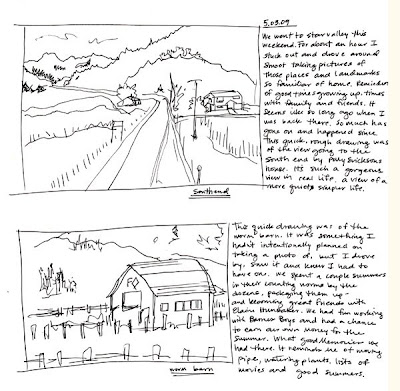 5.03.09
We went to star valley this
weekend. For about an hour I
stuck out and drove around
smoot taking pictures of
those places and landmarks
so familiar of home. Reminders
of good times growing up, times
with family and friends. It
seems like so long ago when I
was back there. So much has
gone on and happened since.
This quick, rough drawing was
of the view going to the
South end by Polly
house. Its such a gorgeous
view in real life, a view of a
more quiet & simpler life.
Southend
This quick drawing was of the
worm barn. It was something I
hadn't intentionally planned on
taking a photo of, but I drove
by, saw it and knew I had to
have one. we spent a couple summers
in their counting worms by the
dozens, packaging them up -
and becoming great friends with
Elaine Hunsaker. We had fun working
with Boys and had a chance
to earn our own money for the
Summer. What good memories we
had there. It reminds me of moving
pipe, watering plants, lots of
movies and good summers.
worm barn